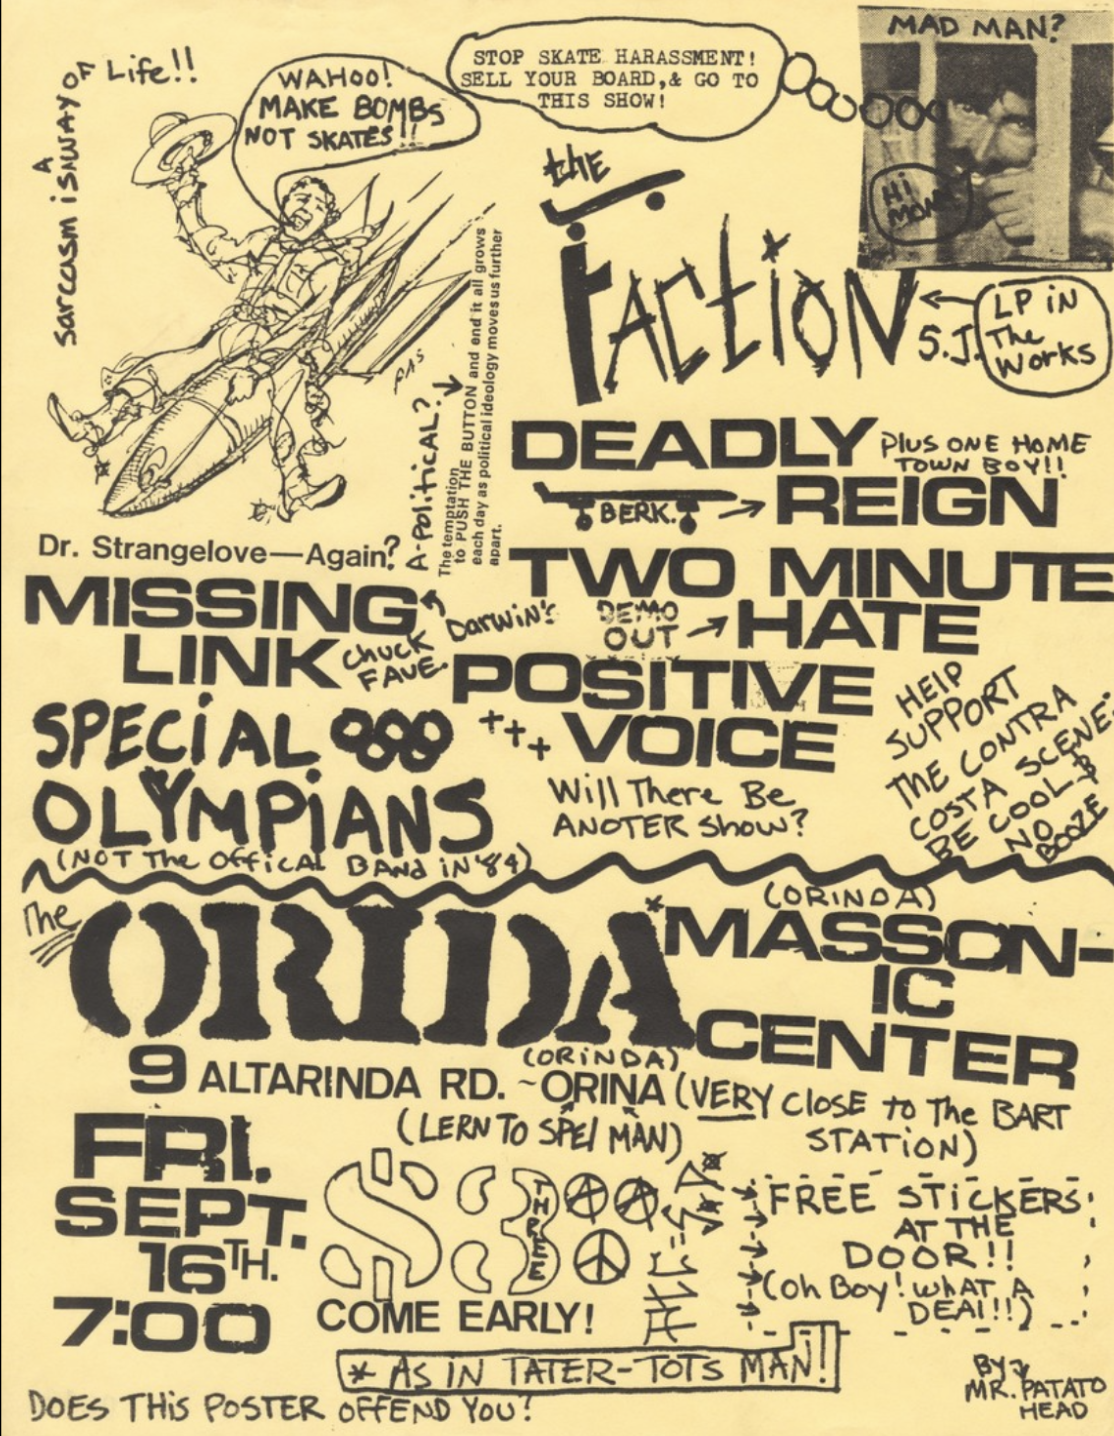 sarcasm is A WAY OF Life!!
WAHOO!
MAKE BOMBS
NOT SKATES!!
STOP SKATE HARASSMENT!
SELL YOUR BOARD,& GO TO
THIS SHOW!
MAD MAN?
Hi
MOM!
the
FACtiON
S.J.
LP iN
The
Works
PAS
A-political?
The temptation
to PUSH THE BUTTON and end it all grows
each day as political ideology moves us further
apart.
Dr. Strangelove—Again?
DEADLY
PLUS ONE HOME
TOWN BOY!!
BERK.
REIGN
TWO MINUTE
DEMO
OUT
HATE
MISSING
LINK
Darwin's
Chuck
FAVE.
POSITIVE
VOICE
SPECiAL
OLYMPiANS
(NOT The OfficAL BANd iN '84)
Will There Be
ANOTER Show?
HELP
SUPPORT
THE CONTRA
COSTA SCENE:
BE COOL.$
NO
BOOZE
The
ORIDA*
(ORINDA)
MASSON-
IC
CENTER
9 ALTARINDA RD. ~ORINA (VERY CLOSE to The BART
STATION)
(ORiNDA)
(LERN TO SPEl MAN)
FRI.
SEPT.
16TH.
7:00
$3
THREE
COME EARLY!
FREE STiCKERS
AT THE
DOOR!!
(Oh Boy! WhAT A
DEAl!!)
* AS IN TATER-TOTS MAN!
DOES THiS POSTER OFFEND YOU?
BY
MR. PATATO
HEAD